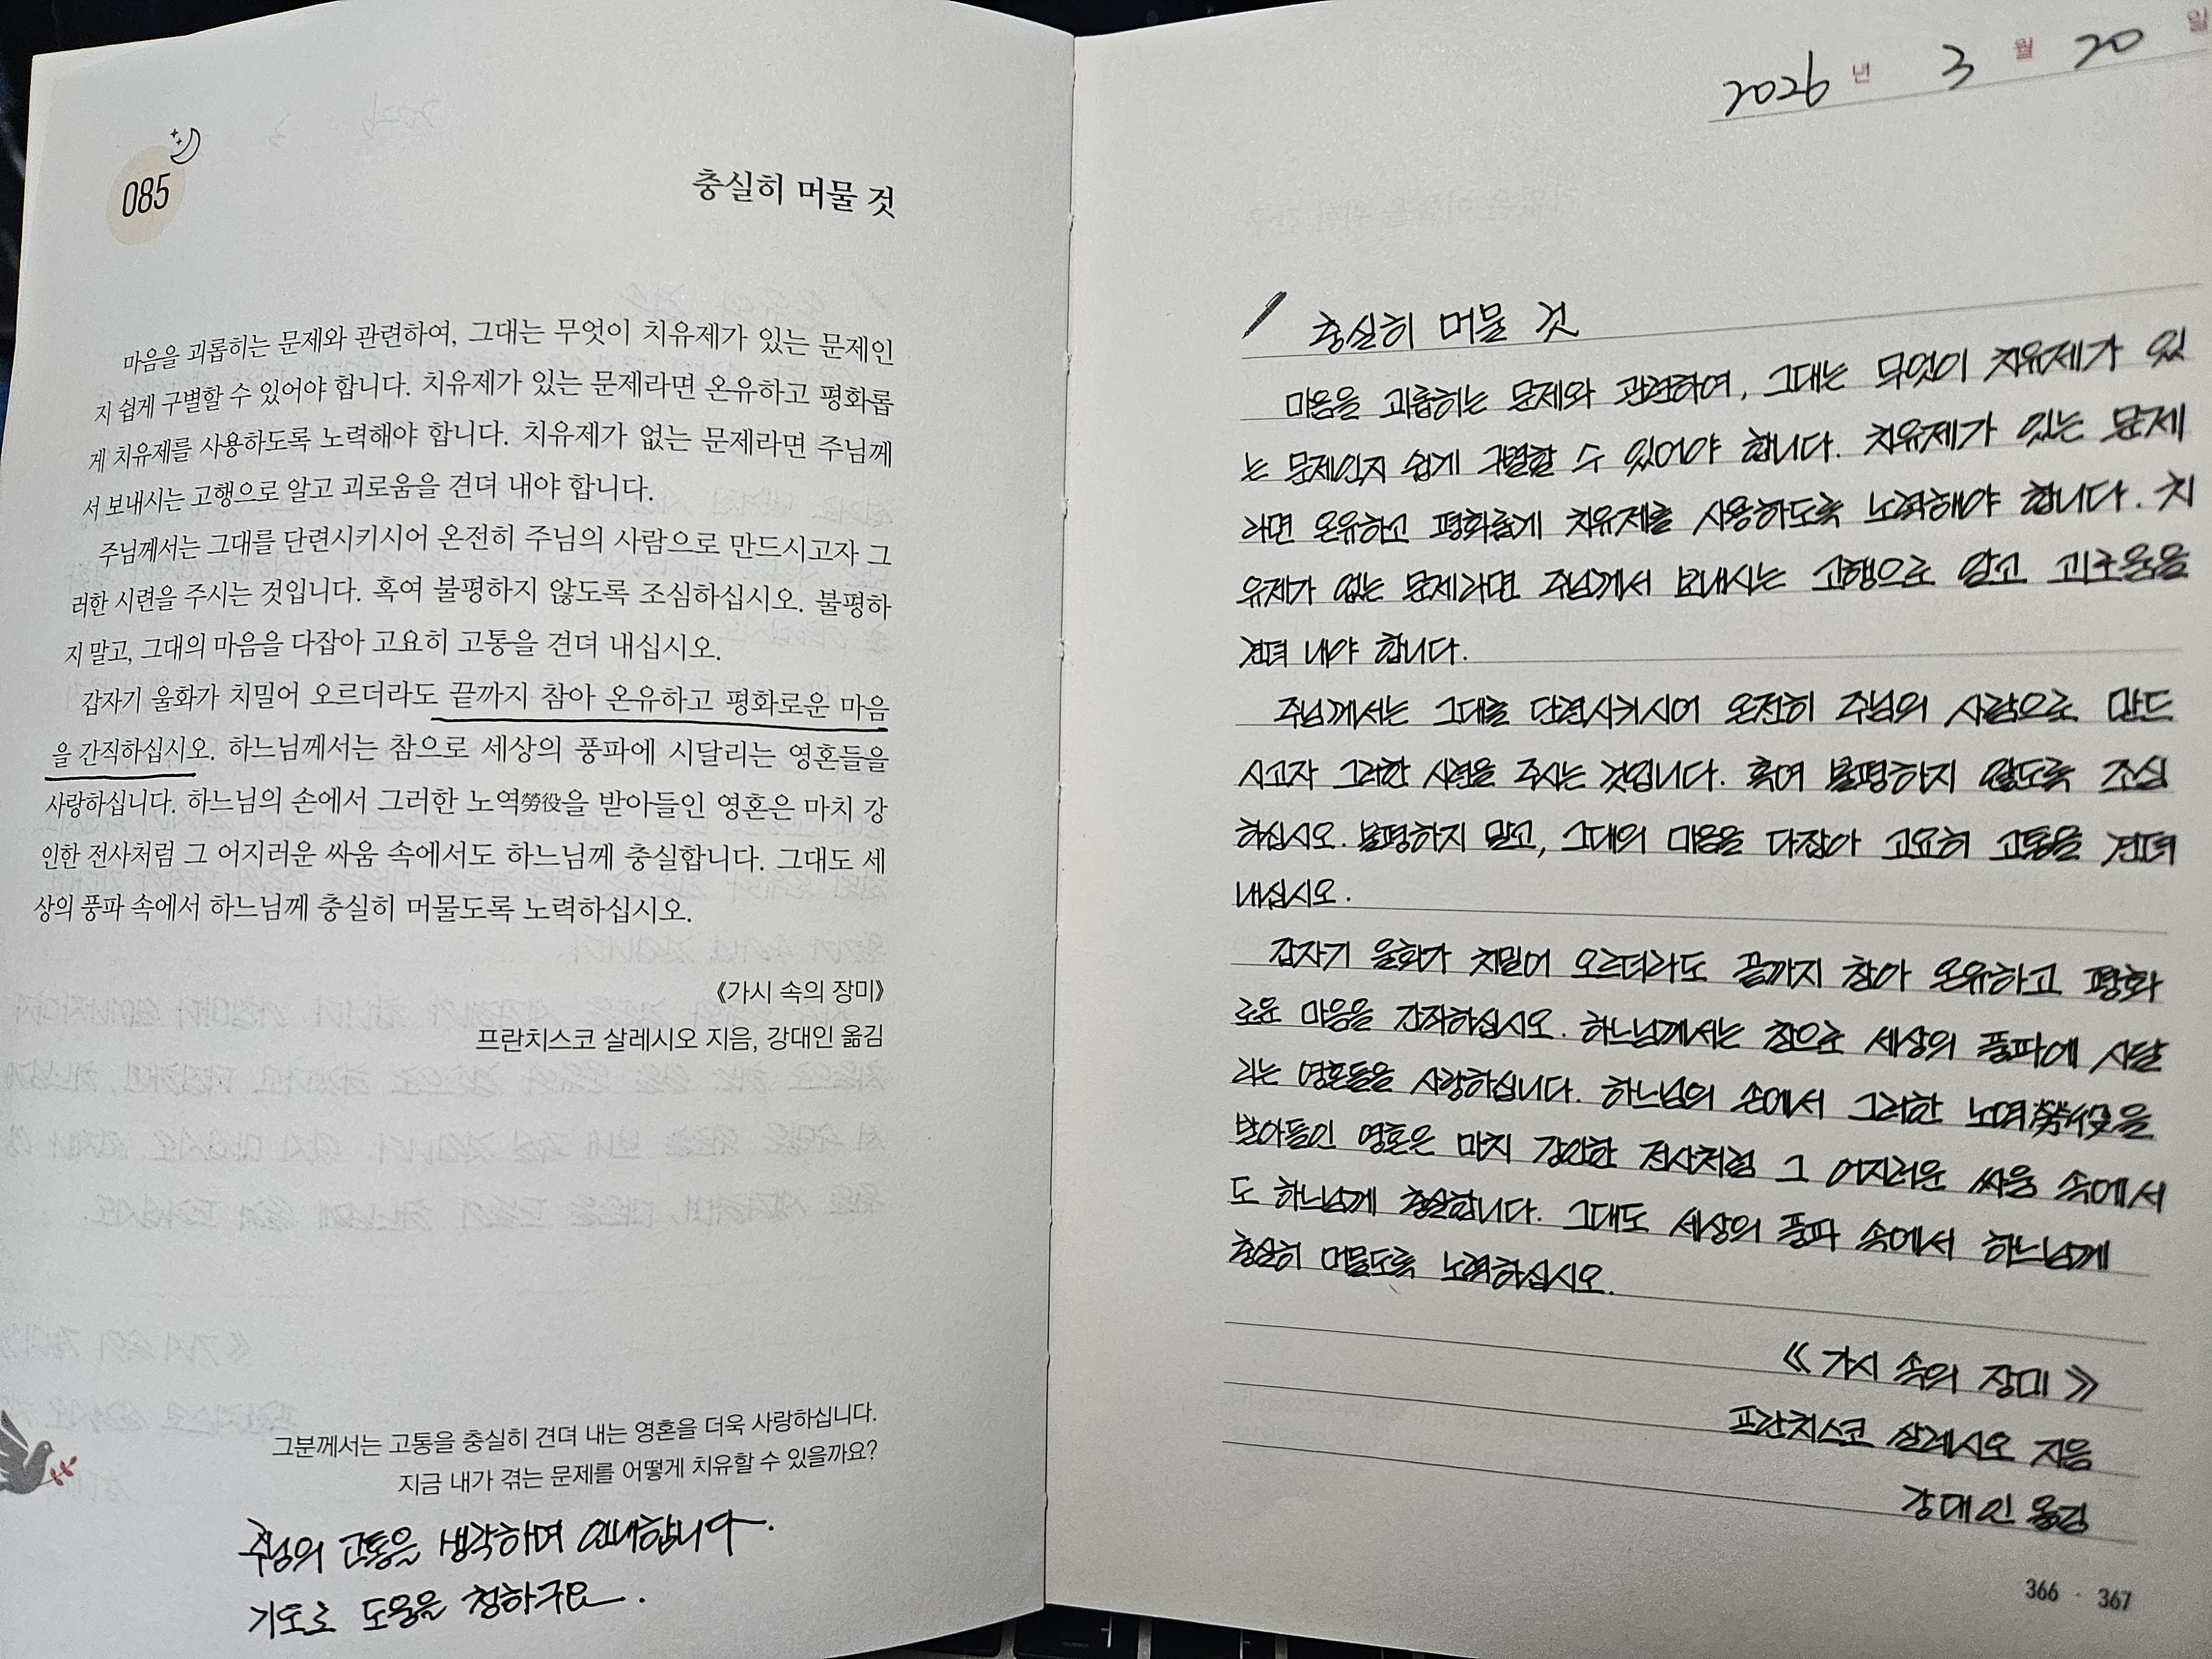 085
충실히 머물 것
마음을 괴롭히는 문제와 관련하여, 그대는 무엇이 치유제가 있는 문제인
지 쉽게 구별할 수 있어야 합니다. 치유제가 있는 문제라면 온유하고 평화롭
게 치유제를 사용하도록 노력해야 합니다. 치유제가 없는 문제라면 주님께
서 보내시는 고행으로 알고 괴로움을 견뎌 내야 합니다.
주님께서는 그대를 단련시키시어 온전히 주님의 사람으로 만드시고자 그
러한 시련을 주시는 것입니다. 혹여 불평하지 않도록 조심하십시오. 불평하
지 말고, 그대의 마음을 다잡아 고요히 고통을 견뎌 내십시오.
갑자기 울화가 치밀어 오르더라도 끝까지 참아 온유하고 평화로운 마음
을 간직하십시오. 하느님께서는 참으로 세상의 풍파에 시달리는 영혼들을
사랑하십니다. 하느님의 손에서 그러한 노역勞役을 받아들인 영혼은 마치 강
인한 전사처럼 그 어지러운 싸움 속에서도 하느님께 충실합니다. 그대도 세
상의 풍파 속에서 하느님께 충실히 머물도록 노력하십시오.
《가시 속의 장미》
프란치스코 살레시오 지음, 강대인 옮김
그분께서는 고통을 충실히 견뎌 내는 영혼을 더욱 사랑하십니다.
지금 내가 겪는 문제를 어떻게 치유할 수 있을까요?
주님의 고통을 생각하며 인내합니다.
기도로 도움을 청하구요.
2026년 3월 20일
충실히 머물 것
마음을 괴롭히는 문제와 관련하여, 그대는 무엇이 치유제가 있
는 문제인지 쉽게 구별할 수 있어야 합니다. 치유제가 있는 문제
라면 온유하고 평화롭게 치유제를 사용하도록 노력해야 합니다. 치
유제가 없는 문제라면 주님께서 보내시는 고행으로 알고 괴로움을
견뎌 내야 합니다.
주님께서는 그대를 단련시키시어 온전히 주님의 사람으로 만드
시고자 그러한 시련을 주시는 것입니다. 혹여 불평하지 않도록 조심
하십시오. 불평하지 말고, 그대의 마음을 다잡아 고요히 고통을 견뎌
내십시오.
갑자기 울화가 치밀어 오르더라도 끝까지 참아 온유하고 평화
로운 마음을 간직하십시오. 하느님께서는 참으로 세상의 풍파에 시달
리는 영혼들을 사랑하십니다. 하느님의 손에서 그러한 노역勞役을
받아들인 영혼은 마치 강인한 전사처럼 그 어지러운 싸움 속에서
도 하느님께 충실합니다. 그대도 세상의 풍파 속에서 하느님께
충실히 머물도록 노력하십시오.
《가시 속의 장미》
프란치스코 살레시오 지음
강대인 옮김
366 · 367